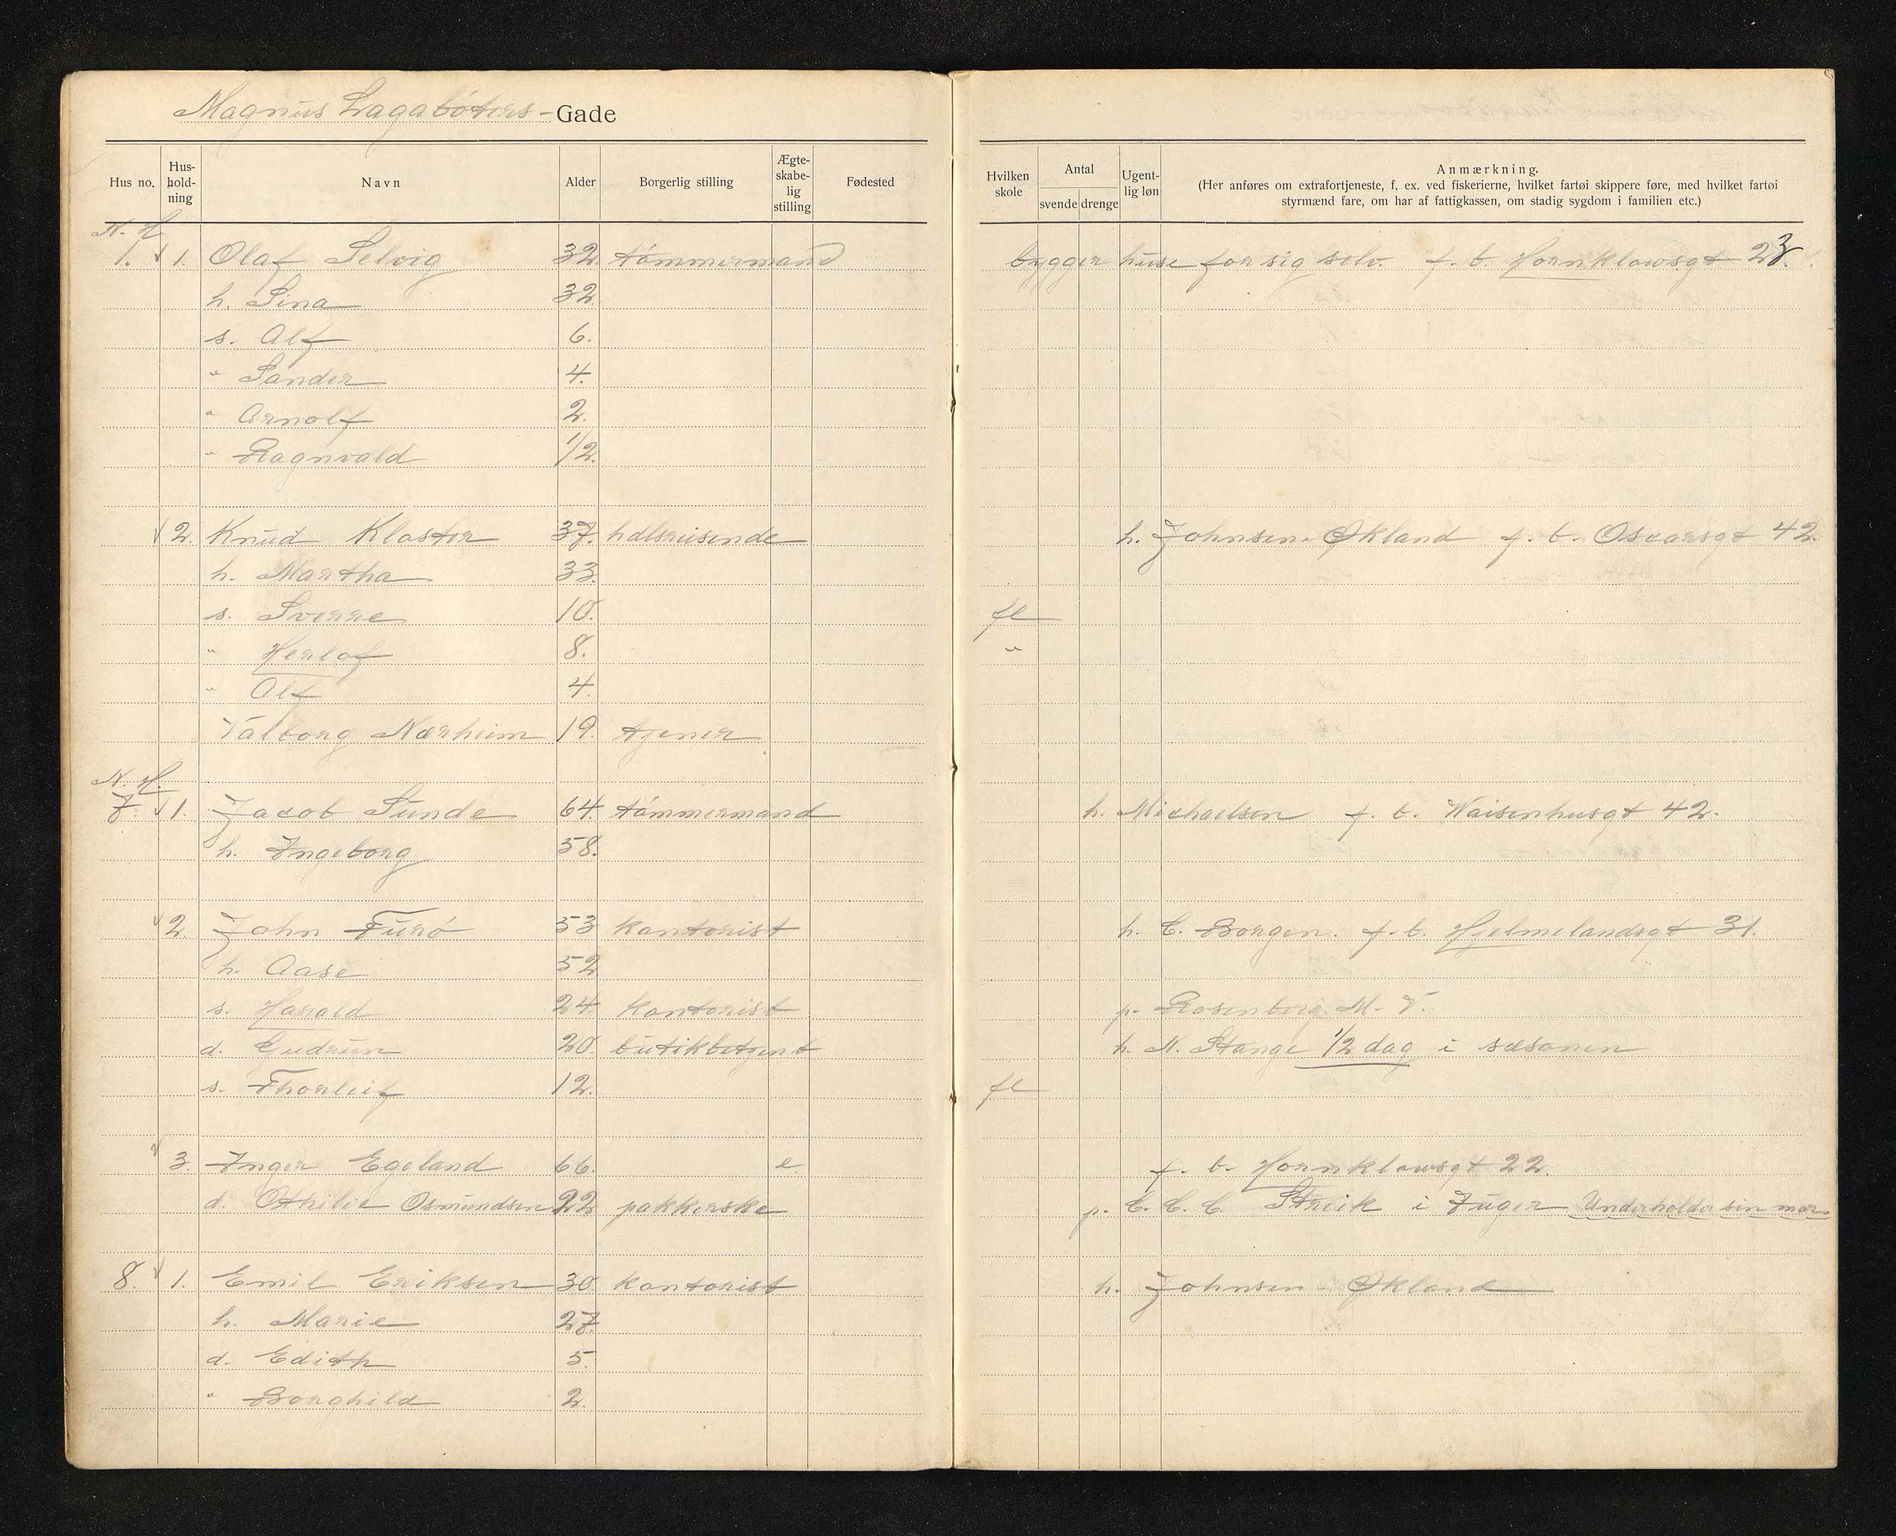 Magnus Lagabøters - Gade
Hus no. Hus-hold-ning Navn Alder Borgerlig stilling Ægte-skabe-lig stilling Fødested Hvilken skole Antal svende drenge Ugent-lig løn Anmærkning.
(Her anføres om extrafortjeneste, f. ex. ved fiskerierne, hvilket fartøi skippere føre, med hvilket fartøi
styrmænd fare, om har af fattigkassen, om stadig sygdom i familien etc.)
N. H.
1. √ 1. Olaf Selvig 32. tømmermand bygger huse for sig selv. f. b. Hornklowsgt 23.
h. Sina 32.
s. Alf 6.
" Sander 4.
" Arnolf 2.
" Ragnvald 1/2.
√ 2. Knud Kloster 37. hdlsreisende h. Johnsen Økland f. b. Oscarsgt 42.
h. Martha 33.
s. Sverre 10. fl
" Herlof 8. "
" Alf 4.
Valborg Nærheim 19. tjener
N. H.
7. √ 1. Jacob Sunde 64. tømmermand h. Michaelsen f. b. Waisenhusgt 42.
h. Ingeborg 58.
√ 2. John Furø 53 kontorist h. E. Borgen. f. b. Hjelmelandsgt 31.
h. Aase 52
s. Harald 24. kontorist p. Rosenberg M. V.
d. Gudrun 20. butikbetjent h. N. Stange 1/2 dag i sæsonen
s. Thorleif 12. fl
√ 3. Inger Egeland 66. e. f. b. Hornklowsgt 22.
d. Othilie Osmundsen 22 pakkerske p. C. C. C. Streik i Tuger Underholder sin mor.
8. √ 1. Emil Eriksen 30. kontorist h. Johnsen Økland
h. Marie 27
d. Edith 5.
" Borghild 2.